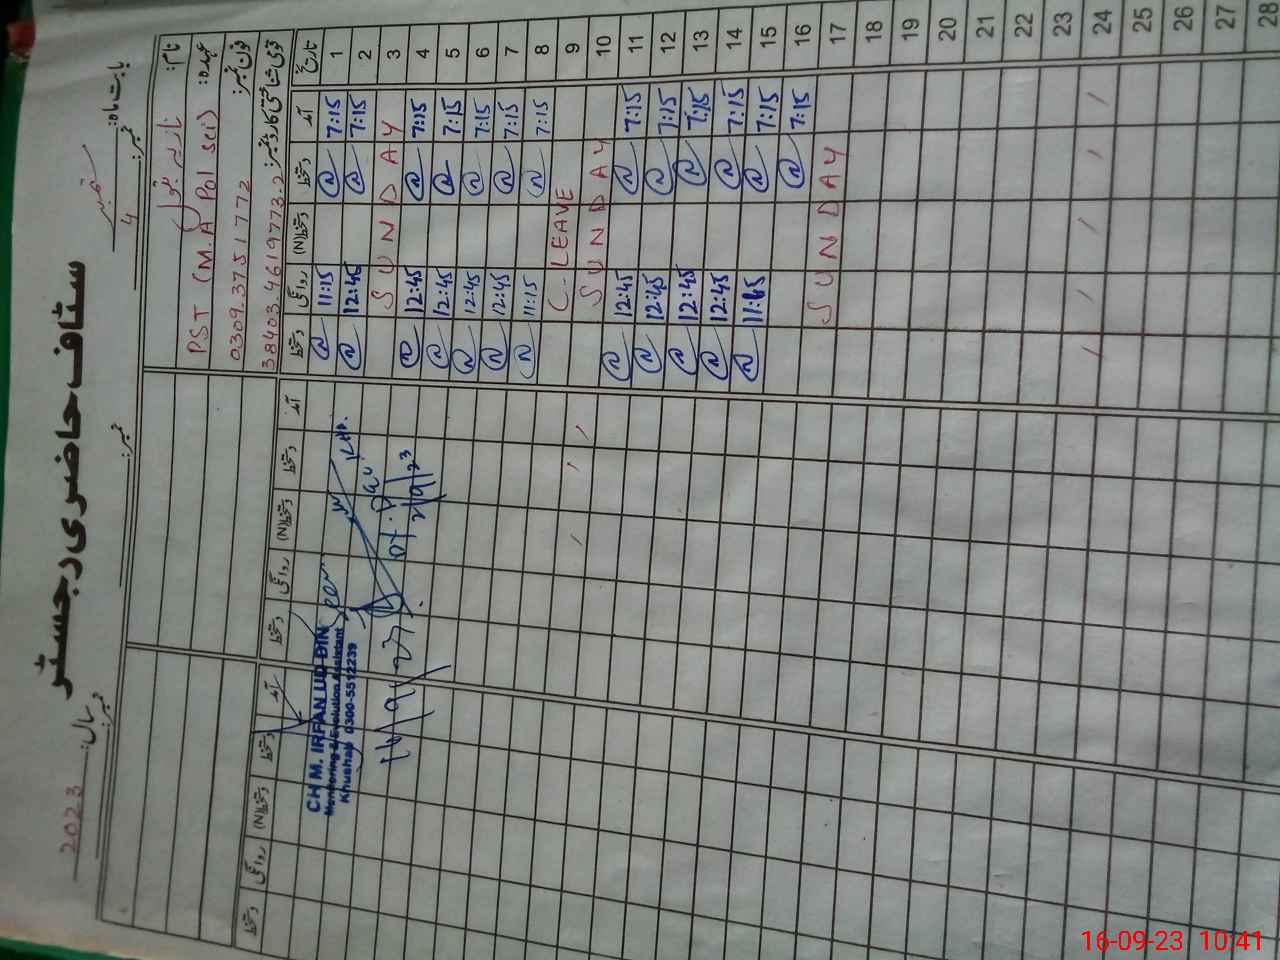 سٹاف حاضری رجسٹر
بابت ماہ: ستمبر سال: 2023
نمبر: 4 نمبر: نمبر:
نام:
عہدہ: PST (M.A Pol sci)
فون نمبر: 0309.3751772
قومی شناختی کارڈ نمبر: 38403.4619773.2
تاریخ آمد دستخط دستخط(N) روانگی دستخط آمد دستخط دستخط(N) روانگی دستخط آمد دستخط دستخط(N) روانگی دستخط
1 7:15 11:15
2 7:15 12:45
3 SUNDAY
4 7:15 12:45
5 7:15 12:45
6 7:15 12:45
7 7:15 12:45
8 7:15 11:15
9 C. LEAVE
10 SUNDAY
11 7:15 12:45
12 7:15 12:45
13 7:15 12:45
14 7:15 12:45
15 7:15 11:15
16 7:15
17 SUNDAY
18
19
20
21
22
23
24
25
26
27
28
CH M. IRFAN UD DIN
Monitoring & Evolution Assistant
Khushab 0300-5512239
16-09-23 10:41